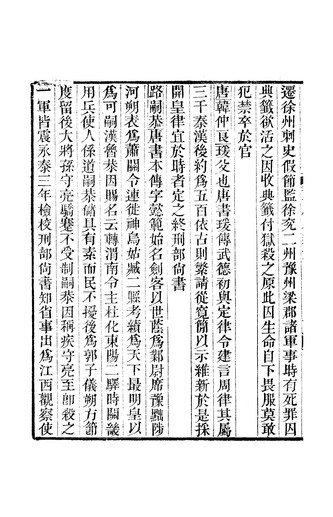 遷徐州刺史假節監徐兗二州豫州梁郡諸軍事時有死罪囚
典籤欲活之因收典籤付獄殺之原此囚生命自下畏服莫敢
犯禁卒於官
唐韓仲良瑗父也唐書瑗傳武德初與定律令建言周律其屬
三千秦漢後約爲五百依古則繁請從寬簡以示維新於是採
開皇律宜於時者定之終刑部尚書
路嗣恭唐書本傳字懿範始名劍客以世蔭爲鄴尉席豫黜陟
河朔表爲蕭關令連徙神烏姑臧二縣考績爲天下最明皇以
爲可嗣漢魯恭因賜名云轉渭南令主杜化東陽二驛時關畿
用兵使人係道嗣恭儲具有素而民不擾後爲郭子儀朔方節
度留後大將孫守亮驕蹇不受制嗣恭因稱疾守亮至卽殺之
一軍皆震永泰三年檢校刑部尚書知省事出爲江西觀察使